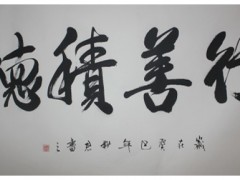 行善積德
歲在癸巳年書之